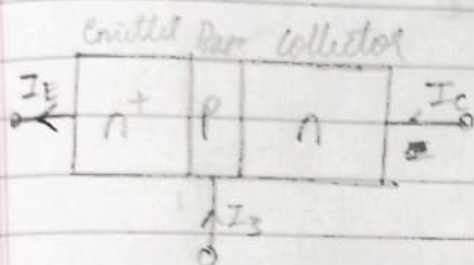 Emitter Base Collector
I_E n⁺ P n I_C
I_B